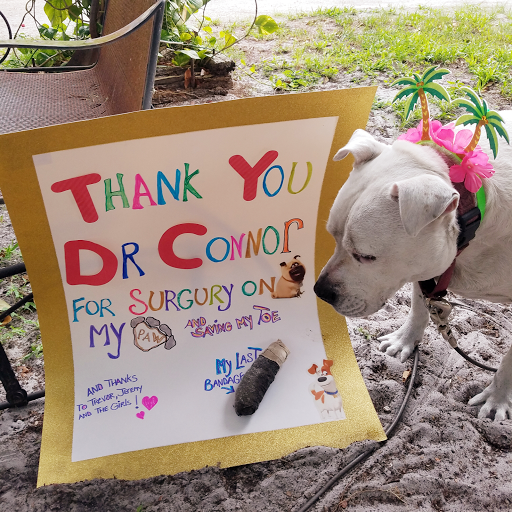 THANK YOU
DR CONNOR
FOR SURGURY ON
MY PAW AND SAVING MY TOE
MY LAST
BANDAGE
AND THANKS
TO TREVOR, JEREMY
AND THE GIRLS!